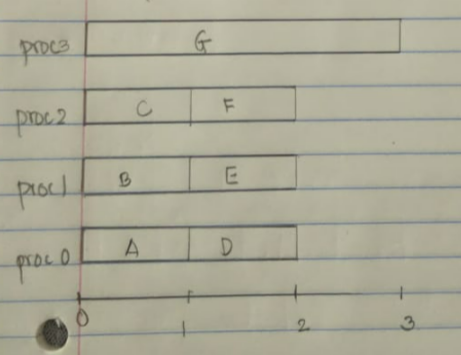 proc3 G
proc2 C F
proc1 B E
proc0 A D
0 1 2 3